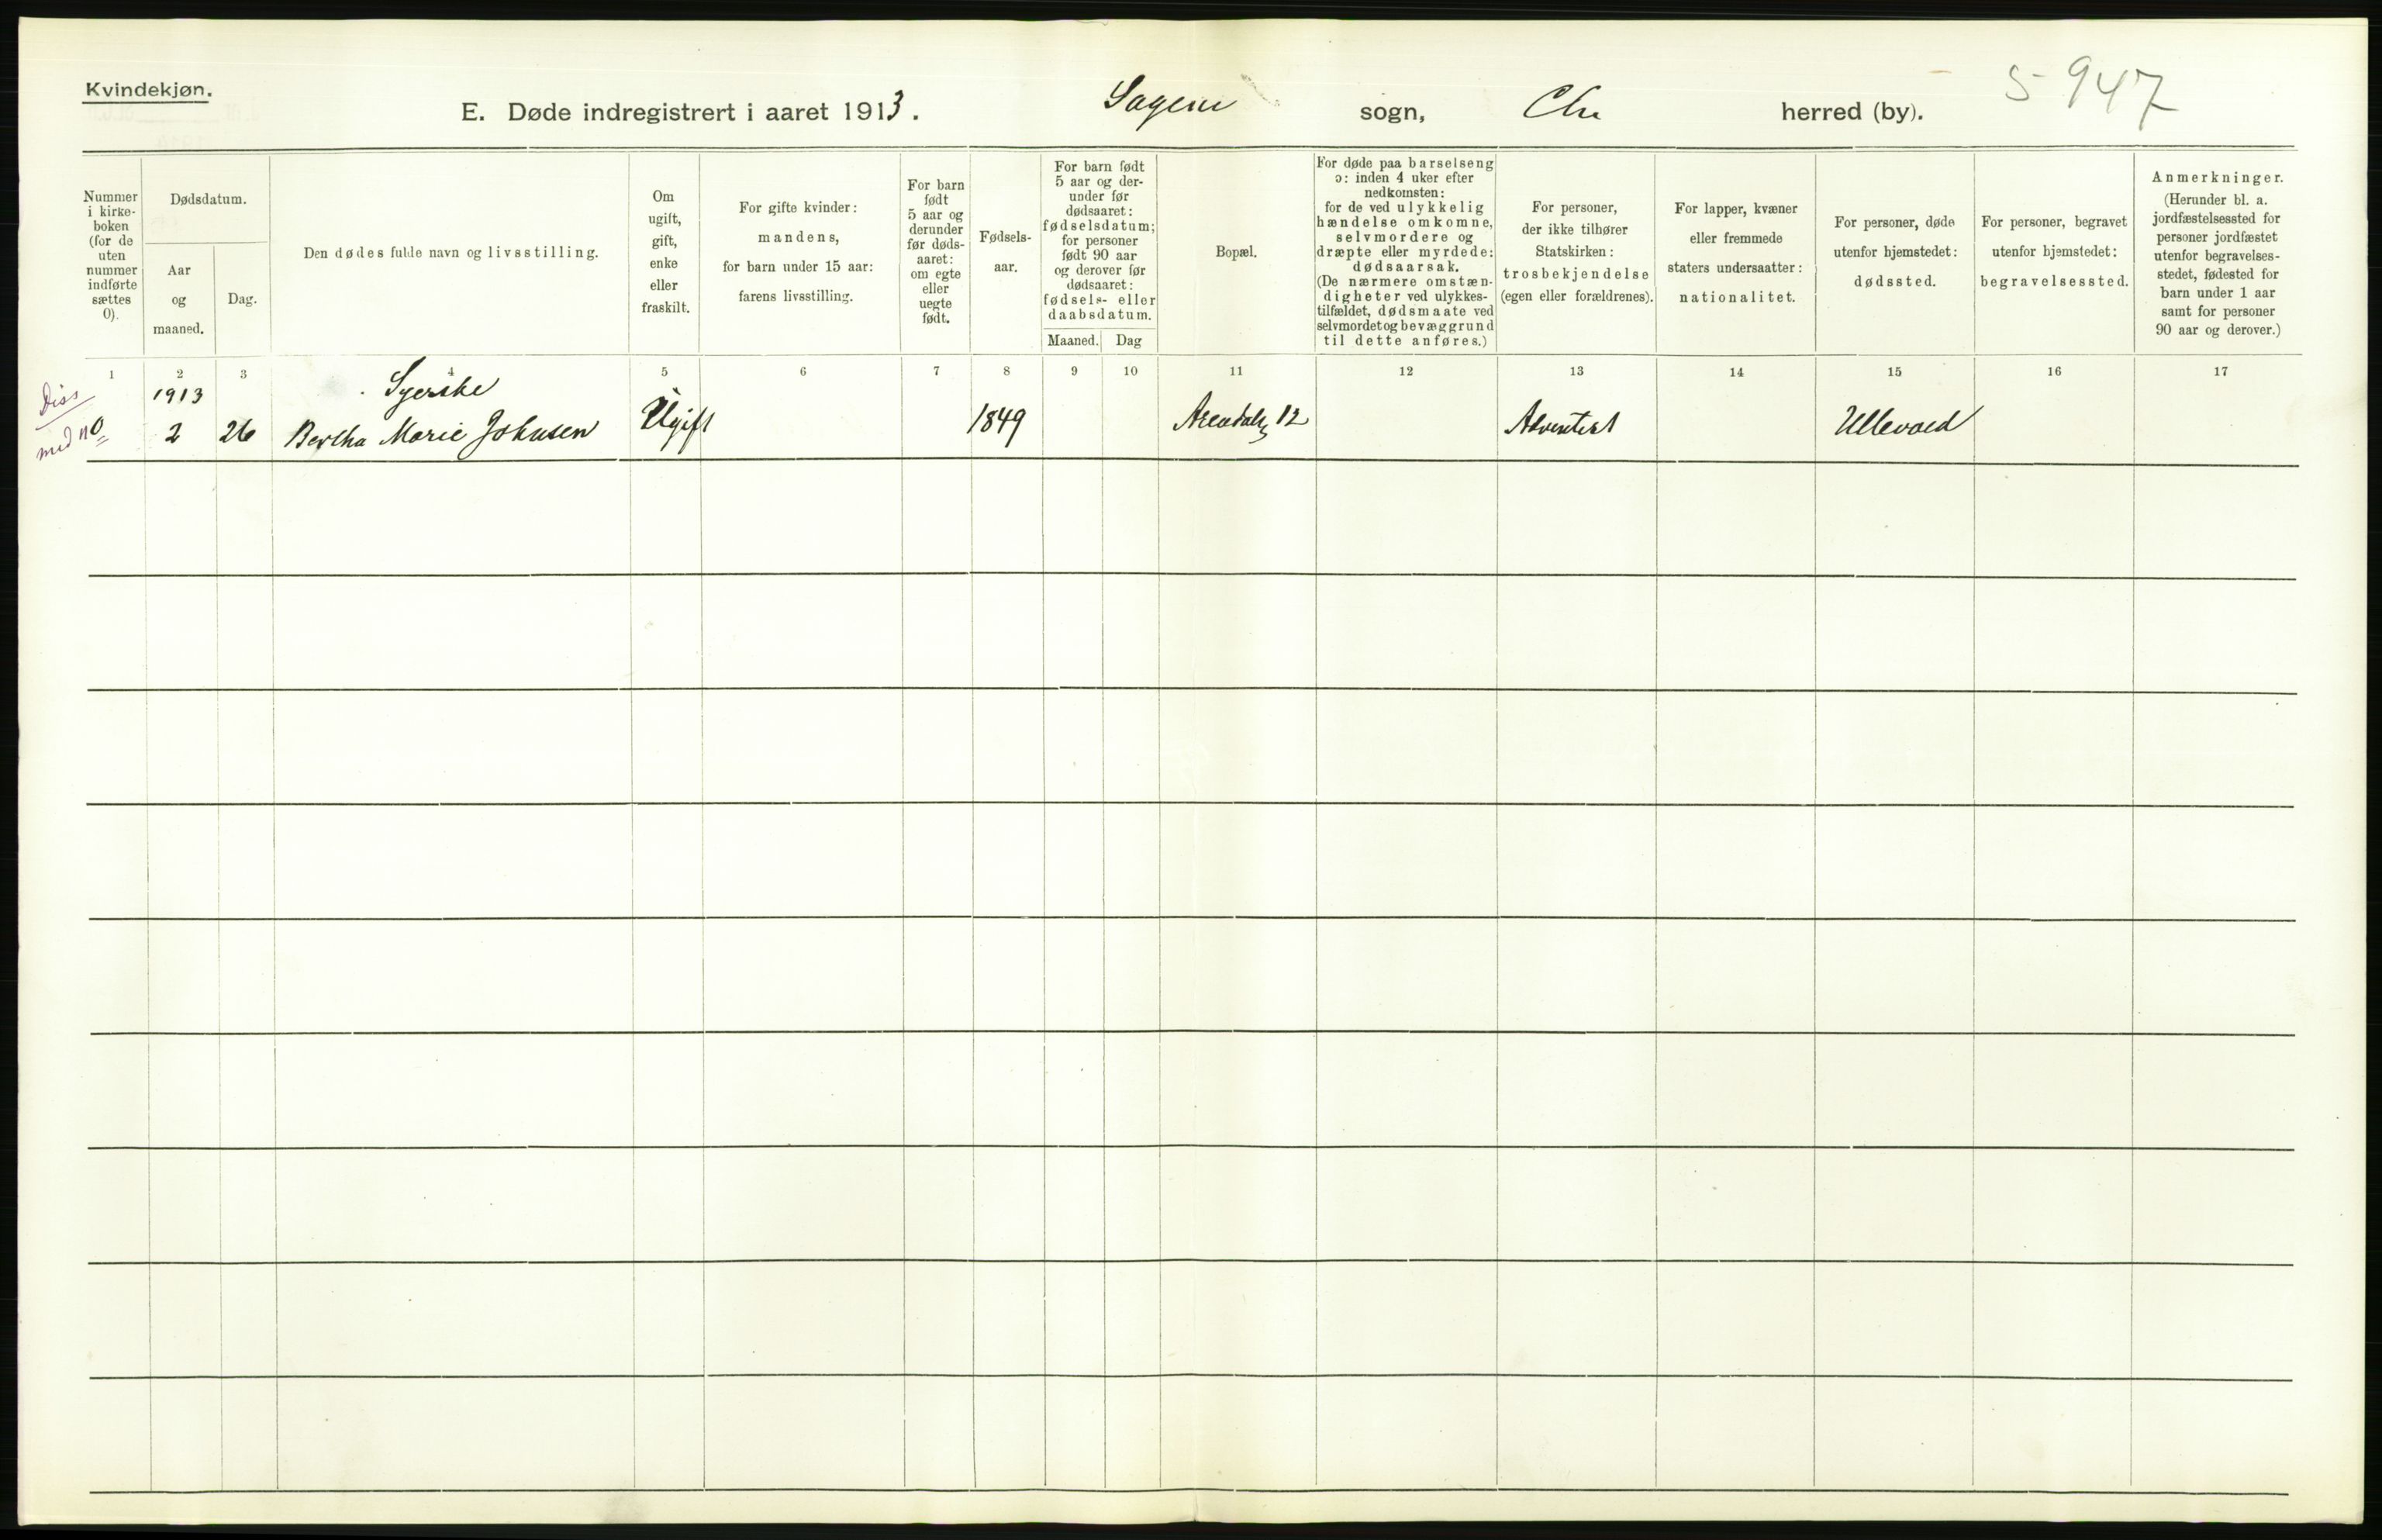 Kvindekjøn.
E. Døde indregistrert i aaret 1913. Sagene sogn, Chr herred (by). 5 947
Nummer i kirke-boken (for de uten nummer indførte sættes 0).
Dødsdatum.
Aar og maaned.
Dag.
Den dødes fulde navn og livsstilling.
Om ugift, gift, enke eller fraskilt.
For gifte kvinder: mandens, for barn under 15 aar: farens livsstilling.
For barn født 5 aar og derunder før døds-aaret: om egte eller uegte født.
Fødsels-aar.
For barn født 5 aar og der-under før dødsaaret: fødselsdatum; for personer født 90 aar og derover før dødsaaret: fødsels- eller daabsdatum.
Maaned. Dag
Bopæl.
For døde paa barselseng ɔ: inden 4 uker efter nedkomsten: for de ved ulykkelig hændelse omkomne, selvmordere og dræpte eller myrdede: dødsaarsak. (De nærmere omstæn-digheter ved ulykkes-tilfældet, dødsmaate ved selvmordet og bevæggrund til dette anføres.)
For personer, der ikke tilhører Statskirken: trosbekjendelse (egen eller forældrenes).
For lapper, kvæner eller fremmede staters undersaatter: nationalitet.
For personer, døde utenfor hjemstedet: dødssted.
For personer, begravet utenfor hjemstedet: begravelsessted.
Anmerkninger. (Herunder bl. a. jordfæstelsessted for personer jordfæstet utenfor begravelses-stedet, fødested for barn under 1 aar samt for personer 90 aar og derover.)
1 2 3 4 5 6 7 8 9 10 11 12 13 14 15 16 17
Diss 1913 Syerske
med no 2 26 Bertha Marie Johnsen Ugift 1849 Arendalsg 12 Adventist Ullevaal